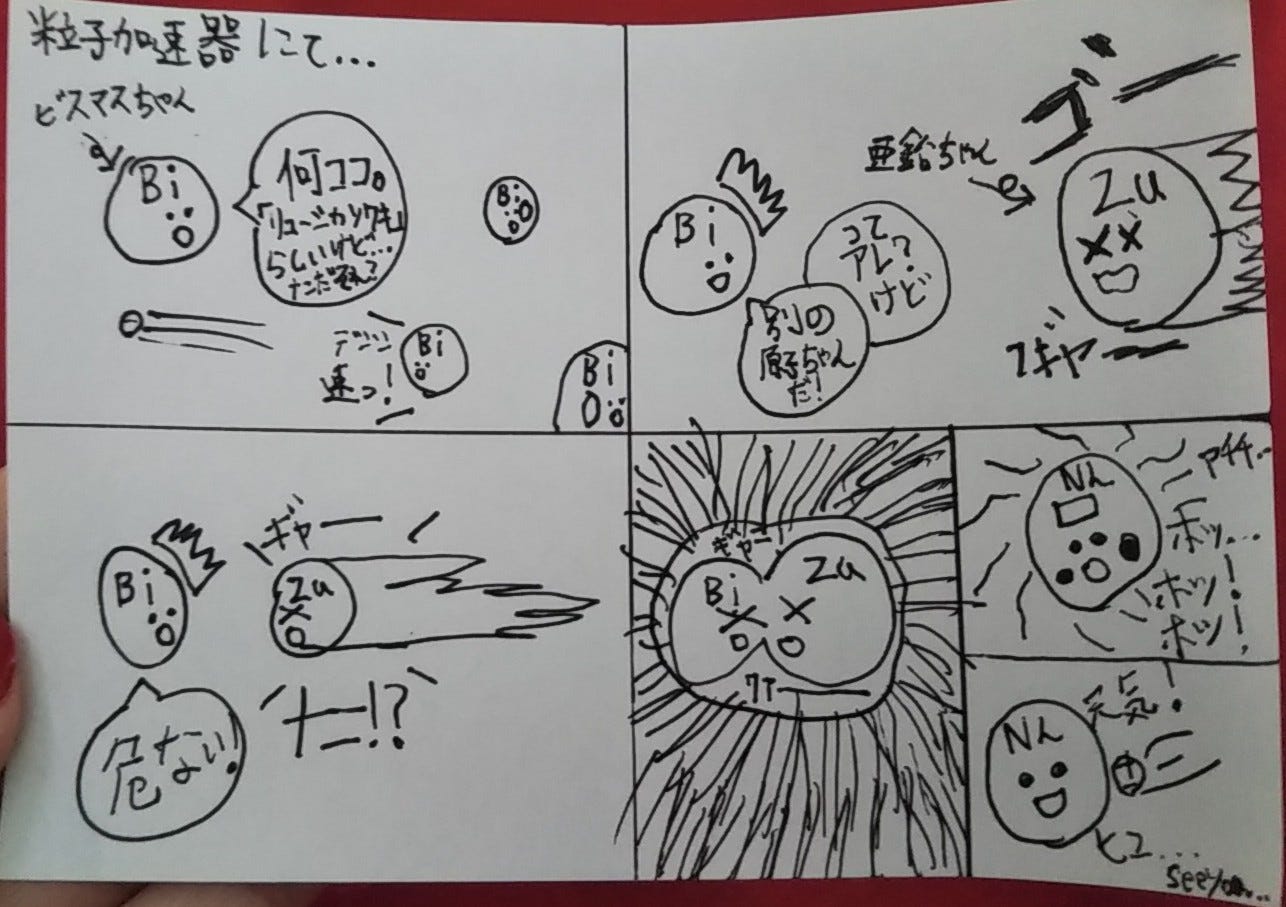 粒子加速器にて...
ビスマスちゃん
Bi
何ココ。
「リュージカソクキ」
らしいけど...
ナンだそれ?
Bi
デンシ
速っ!
Bi
Bi
ゴー
亜鉛ちゃん
Zu
Bi
って
アレ?
けど
別の
原子ちゃん
だ!
ギャー
Bi
ギャー
Zu
危ない!
ナー!?
ギャー
Bi
Zu
ワアー
Nん
アチチ..
ボッ...
ボッ!
ボッ!
Nん
元気!
ヒュ...
see you...